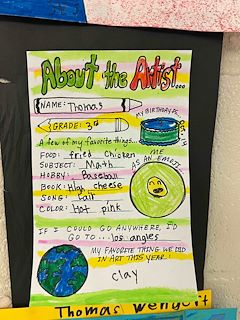 About the Artist...
NAME: Thomas
MY BIRTHDAY IS...
GRADE: 3rd
A few of my favorite things...
FOOD: fried chicken
SUBJECT: Math
HOBBY: Baseball
BOOK: cheese
SONG:
COLOR: Hot pink
ME
AS AN EMOJI
IF I COULD GO ANYWHERE, I'D
GO TO...los angles
MY FAVORITE THING WE DID
IN ART THIS YEAR:
clay
Thomas